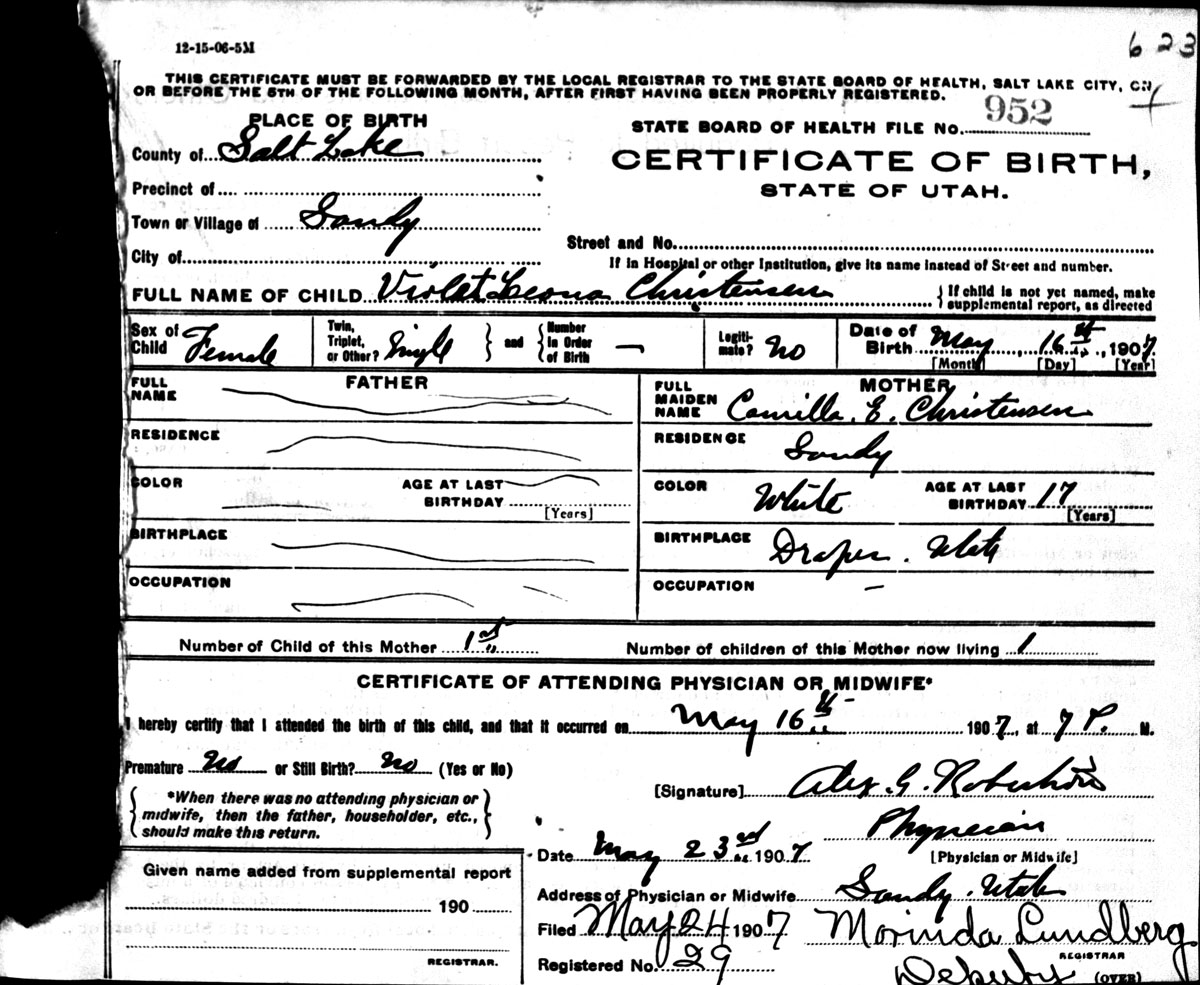 12-15-06-5M
623
THIS CERTIFICATE MUST BE FORWARDED BY THE LOCAL REGISTRAR TO THE STATE BOARD OF HEALTH, SALT LAKE CITY, ON
OR BEFORE THE 5TH OF THE FOLLOWING MONTH, AFTER FIRST HAVING BEEN PROPERLY REGISTERED.
PLACE OF BIRTH
STATE BOARD OF HEALTH FILE No. 952
County of Salt Lake
CERTIFICATE OF BIRTH,
STATE OF UTAH.
Precinct of
Town or Village of Sandy
Street and No.
City of
If in Hospital or other Institution, give its name instead of Street and number.
FULL NAME OF CHILD Violet Leona Christensen { If child is not yet named, make
supplemental report, as directed
Sex of Child Female
Twin, Triplet, or Other? Single } and { Number in Order of Birth —
Legiti- mate? No
Date of Birth May 16th, 1907
[Month] [Day] [Year]
FATHER
FULL NAME
RESIDENCE
COLOR AGE AT LAST BIRTHDAY
[Years]
BIRTHPLACE
OCCUPATION
MOTHER
FULL MAIDEN NAME Camilla E. Christensen
RESIDENCE Sandy
COLOR White AGE AT LAST BIRTHDAY 17
[Years]
BIRTHPLACE Draper. Utah
OCCUPATION –
Number of Child of this Mother 1st
Number of children of this Mother now living 1
CERTIFICATE OF ATTENDING PHYSICIAN OR MIDWIFE*
I hereby certify that I attended the birth of this child, and that it occurred on May 16th 1907, at 7 P. M.
Premature No or Still Birth? No (Yes or No)
{ *When there was no attending physician or
midwife, then the father, householder, etc.,
should make this return. }
[Signature] Alex. G. Robertson
Physician
[Physician or Midwife]
Date May 23rd 1907
Address of Physician or Midwife Sandy. Utah
Given name added from supplemental report
190
REGISTRAR.
Filed May 24 1907 Morinda Lundberg
REGISTRAR
Registered No. 29 Deputy (OVER)